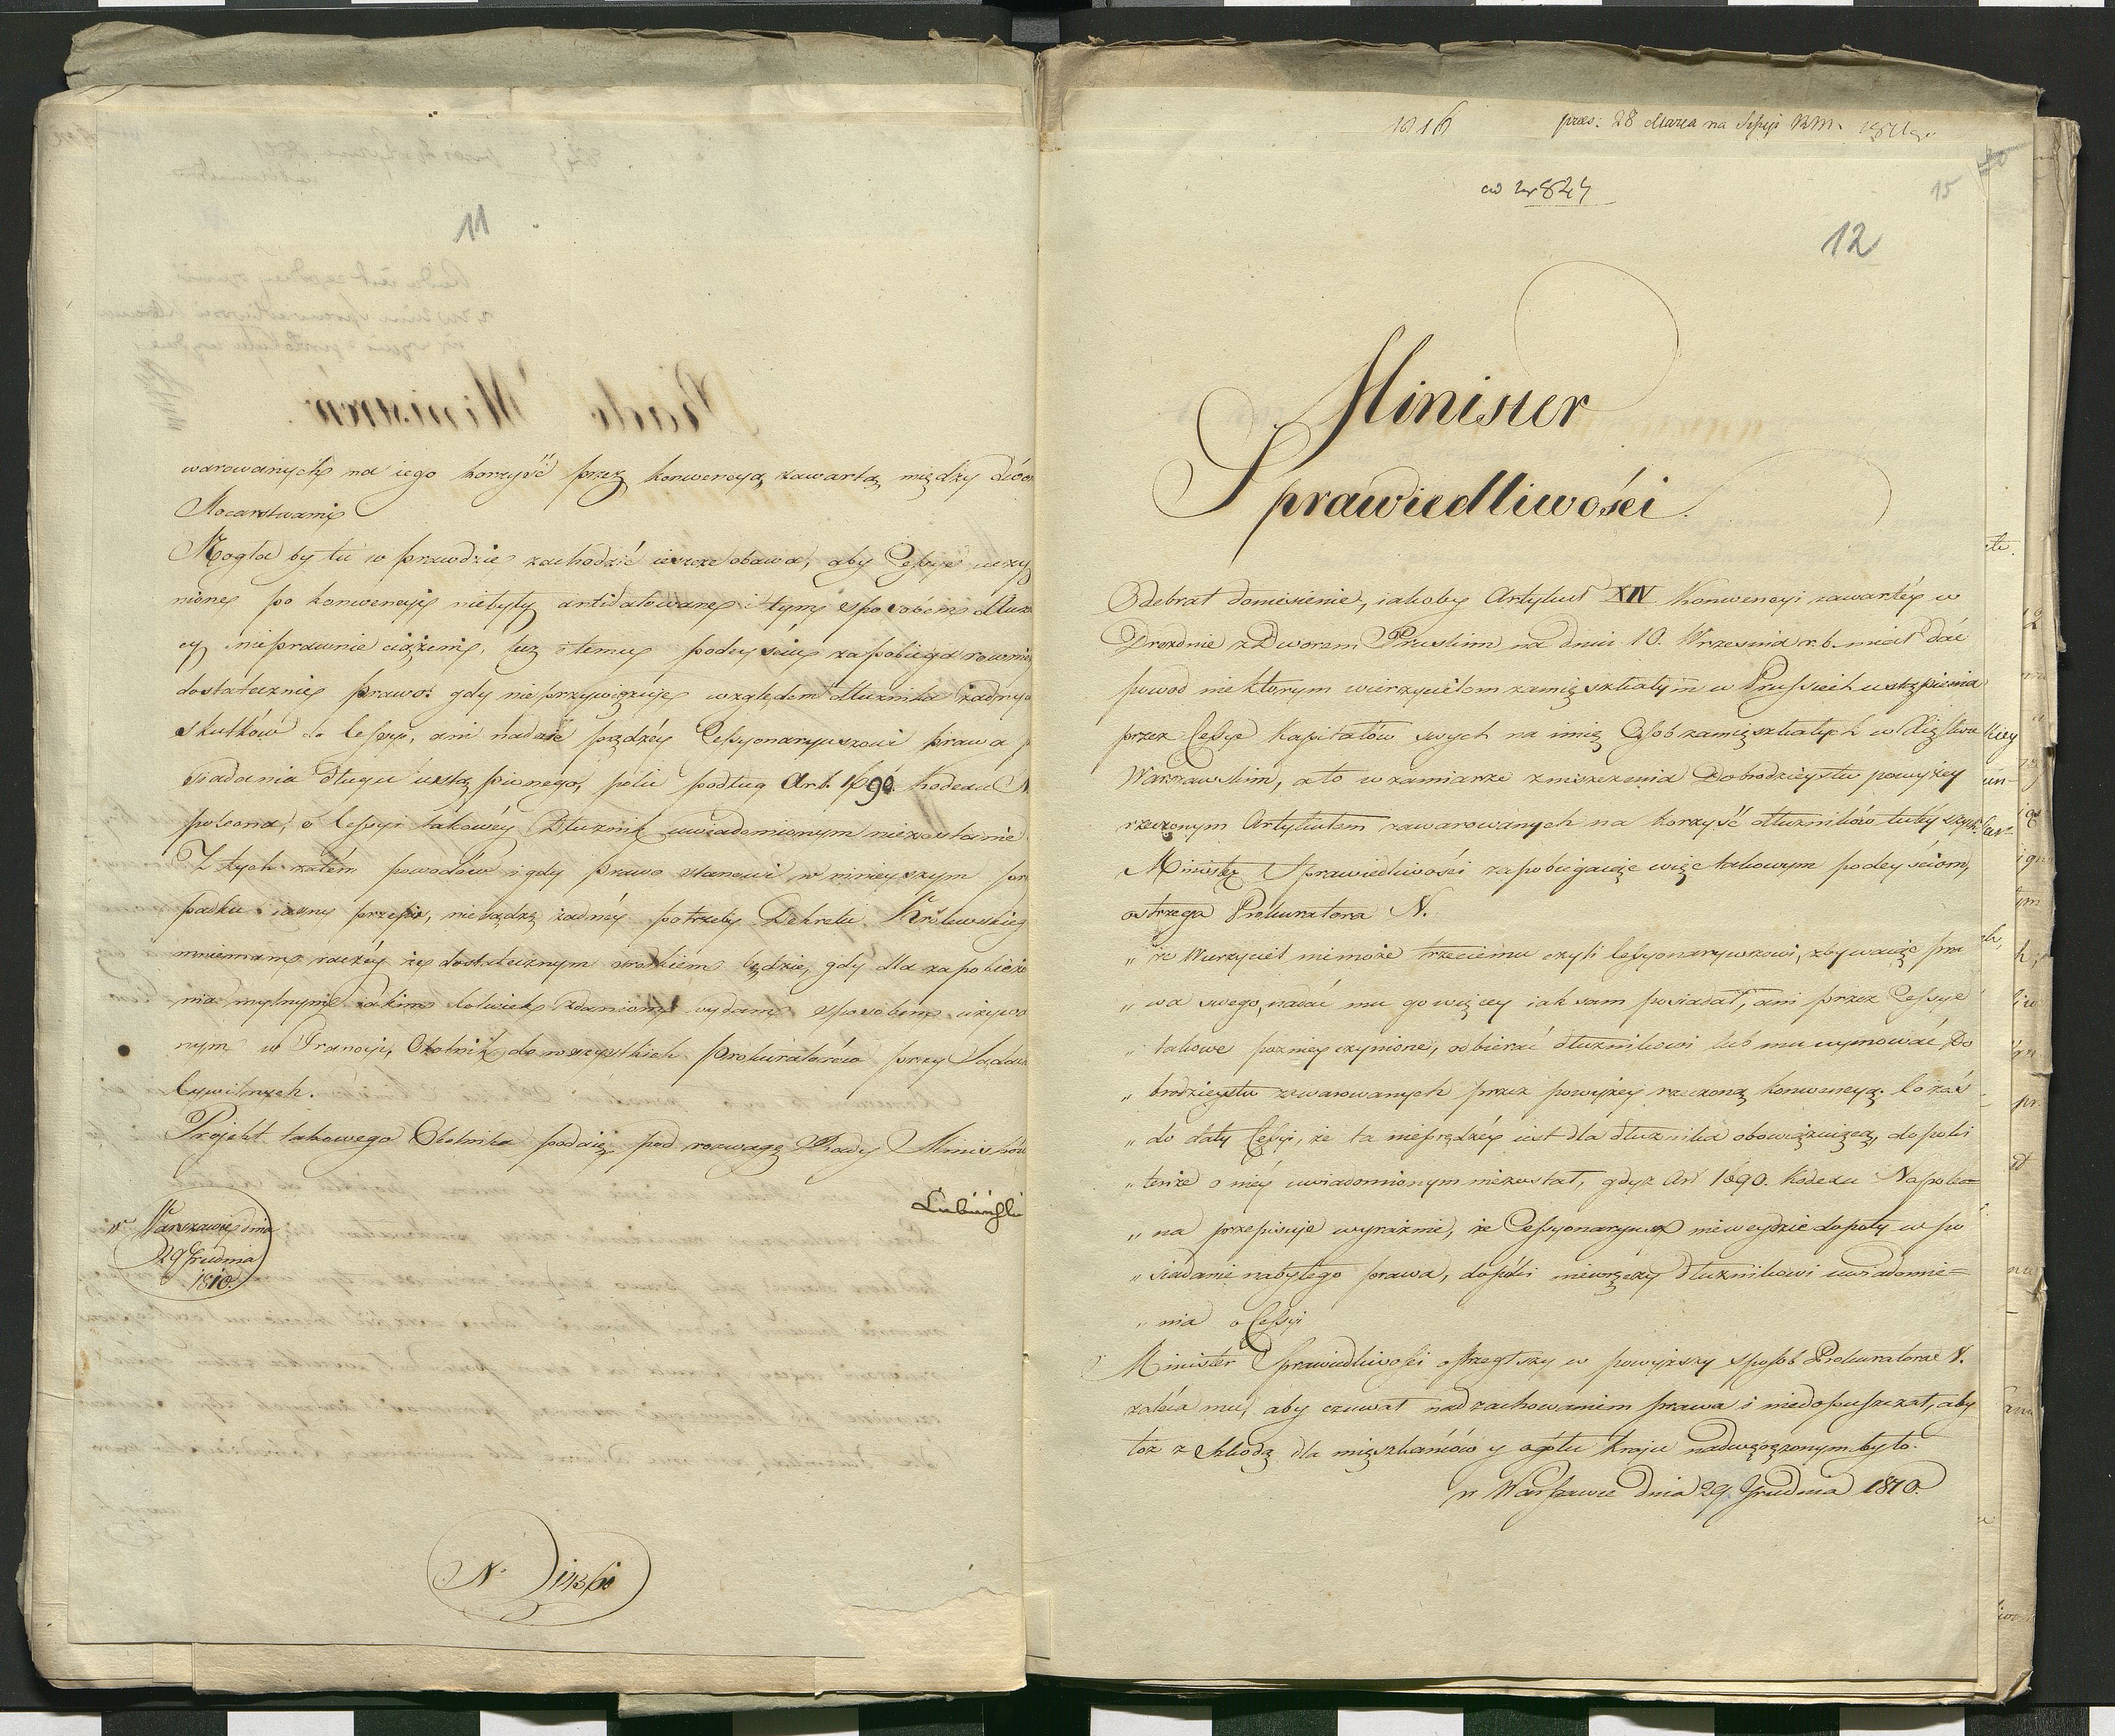 11
warowanych na iego korzyść przez konwencyą zawartą między dwo
Mocarstwami
Mogła by tu w prawdzie zachodzić ieszcze obawa, aby Cessye uczy
nione po konwencyi niebyły antidatowane i tym sposobem dłuż
cy nieprawnie ciążeni, lecz i temu podeyściu zapobiega rownie
dostatecznie prawo: gdy nieprzywięzuje względem dłużnika żadnyc
skutków do Cessyi, ani nadaie prędzéy Cessyonaryuszowi prawa p
siadania długu ustąpionego, póki podług Art. 1690 Kodexu N
poleona, o Cessyi takowéy Dłużnik uwiadomionym niezostanie
Z tych zatém powodów i gdy prawo stanowi w ninieyszym prz
padku iasny przepis, niebędąc żadnéy potrzeby Dekretu Królewskieg
mniemam raczéy że dostatecznym srodkiem będzie, gdy dla zapobieże
nia mylnym iakim kolwiek zdaniom wydam sposobem używa
nym w Francyi, Okolnik do wszystkich Prokuratorów przy Sądac
Cywilnych.
Projekt takowego Okolnika podaię pod rozwagę Rady Ministrów
Łubieński
w Warszawie dnia
29 Grudnia
1810.
1816
praes: 28 Marca na Sessyi RM. 1811 go
ad Nr 824
15
12
Minister
Sprawiedliwości.
Odebrał doniesienie, iakoby Artykuł XIV Konwencyi zawartéy w
Dreznie z Dworem Pruskim na dniu 10. Wrzesnia r. b. miał dać
powod niektorym wierzycielom zamięszkałym w Prussiech ustąpienia
przez Cessye Kapitałów swych na imię Osob zamięszkałych w Xięstwie
Warszawskim, a to w zamiarze zniszczenia Dobrodzieystw powyżey
rzeczonym Artykułem zawarowanych na korzyść dłużników tuteyszych
Minister Sprawiedliwości zapobiegaiąc więc takowym podeyściom,
ostrzega Prokuratora N.
„ że Wierzyciel niemoże trzeciemu czyli Cessyonaryuszowi, zbywaiąc pra
„ wa swego, nadać mu go więcey iak sam posiadał, ani przez Cessye
„ takowe pozniey czynione, odbierać dłużnikowi lub mu uymować Do
„ brodzieystw zawarowanych przez powyżey rzeczoną konwencyą. Co zaś
„ do daty Cessyi, że ta nieprędzéy iest dla dłużnika obowięzuiącą, dopoki
„ tenże o niéy uwiadomionym niezostał, gdyż Art 1690. Kodexu Napoleo=
„ na przepisuje wyraźnie, że Cessyonaryusz niewejdzie dopoty w po
„ siadanie nabytego prawa, dopóki niewręczy dłużnikowi uwiadomie=
„ nia o Cessyi
Minister Sprawiedliwości ostrzegłszy w powyższy sposob Prokuratora N.
zaleca mu, aby czuwał nad zachowaniem prawa i niedopuszczał, aby
toż z szkodą dla mięszkańców y ogółu kraju nadwęrężonym było.
w Warszawie dnia 29. Grudnia 1810.